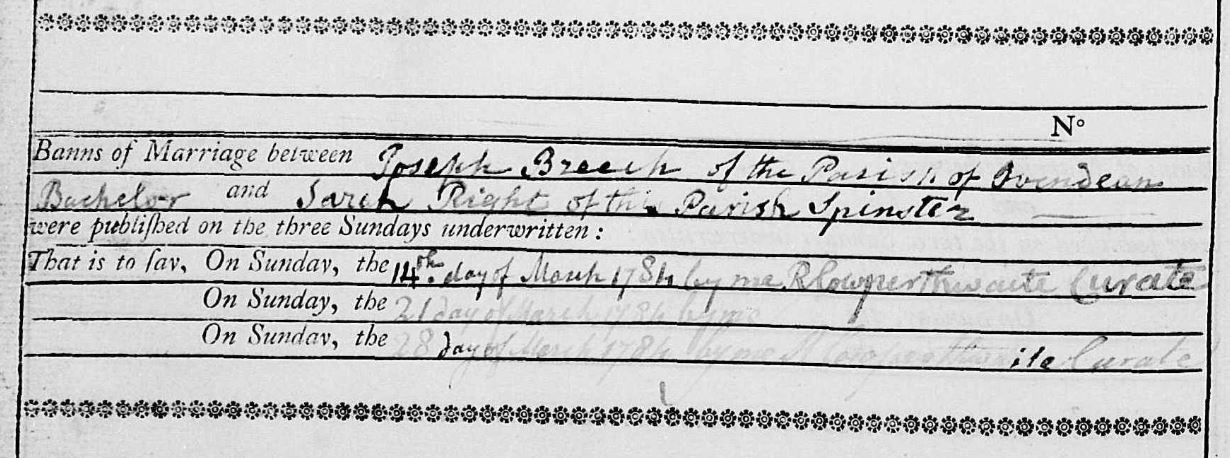 N°
Banns of Marriage between Joseph Breech of the Parish of Ovendean
Bachelor and Sarah Right of this Parish Spinster
were publiſhed on the three Sundays underwritten:
That is to ſay, On Sunday, the 14th day of March 1784 by me R Cowperthwaite Curate
On Sunday, the 21 day of March 1784 by me
On Sunday, the 28 day of March 1784 by me R Cowperthwaite Curate